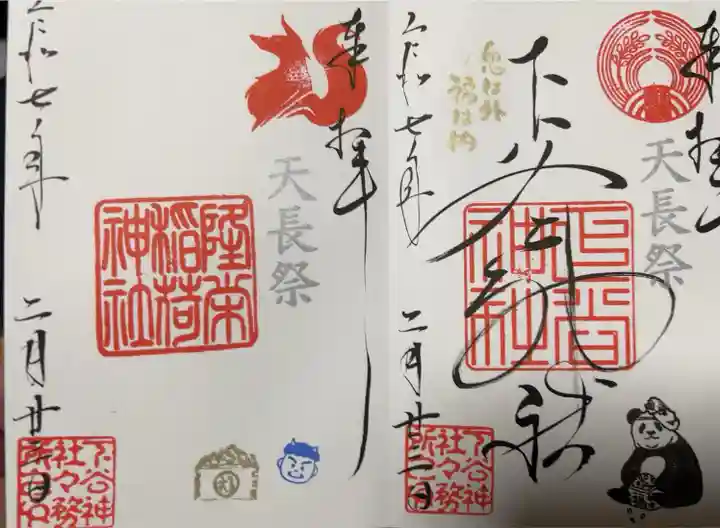 奉拝
天長祭
下谷神社
下谷
神社
鬼は外
福は内
令和七年 二月廿三日
下谷神
社々務
奉拝
天長祭
隆栄
稲荷
神社
令和七年 二月廿三日
下谷神
社々務